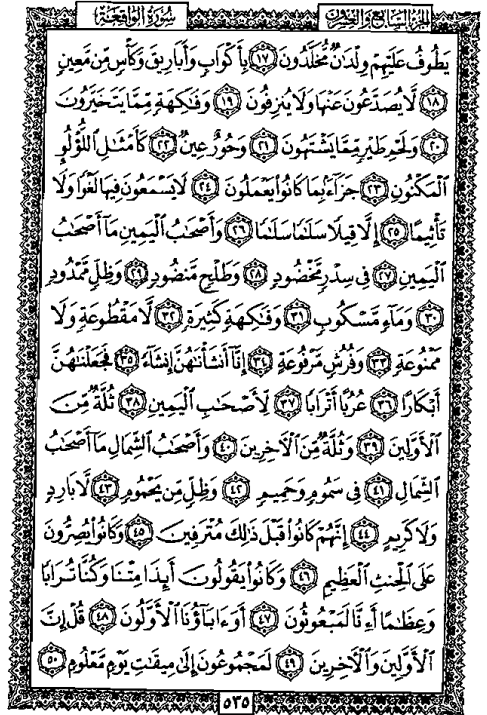 سورة الواقعة الجزء السابع والعشرون
يَطُوفُ عَلَيْهِمْ وِلْدَٰنٌ مُّخَلَّدُونَ ١٧ بِأَكْوَابٍ وَأَبَارِيقَ وَكَأْسٍ مِّن مَّعِينٍ
١٨ لَّا يُصَدَّعُونَ عَنْهَا وَلَا يُنزِفُونَ ١٩ وَفَٰكِهَةٍ مِّمَّا يَتَخَيَّرُونَ
٢٠ وَلَحْمِ طَيْرٍ مِّمَّا يَشْتَهُونَ ٢١ وَحُورٌ عِينٌ ٢٢ كَأَمْثَٰلِ اللُّؤْلُؤِ
الْمَكْنُونِ ٢٣ جَزَآءً بِمَا كَانُوا۟ يَعْمَلُونَ ٢٤ لَا يَسْمَعُونَ فِيهَا لَغْوًا وَلَا
تَأْثِيمًا ٢٥ إِلَّا قِيلًا سَلَٰمًا سَلَٰمًا ٢٦ وَأَصْحَٰبُ الْيَمِينِ مَآ أَصْحَٰبُ
الْيَمِينِ ٢٧ فِى سِدْرٍ مَّخْضُودٍ ٢٨ وَطَلْحٍ مَّنضُودٍ ٢٩ وَظِلٍّ مَّمْدُودٍ
٣٠ وَمَآءٍ مَّسْكُوبٍ ٣١ وَفَٰكِهَةٍ كَثِيرَةٍ ٣٢ لَّا مَقْطُوعَةٍ وَلَا
مَمْنُوعَةٍ ٣٣ وَفُرُشٍ مَّرْفُوعَةٍ ٣٤ إِنَّآ أَنشَأْنَٰهُنَّ إِنشَآءً ٣٥ فَجَعَلْنَٰهُنَّ
أَبْكَارًا ٣٦ عُرُبًا أَتْرَابًا ٣٧ لِّأَصْحَٰبِ الْيَمِينِ ٣٨ ثُلَّةٌ مِّنَ
الْأَوَّلِينَ ٣٩ وَثُلَّةٌ مِّنَ الْآخِرِينَ ٤٠ وَأَصْحَٰبُ الشِّمَالِ مَآ أَصْحَٰبُ
الشِّمَالِ ٤١ فِى سَمُومٍ وَحَمِيمٍ ٤٢ وَظِلٍّ مِّن يَحْمُومٍ ٤٣ لَّا بَارِدٍ
وَلَا كَرِيمٍ ٤٤ إِنَّهُمْ كَانُوا۟ قَبْلَ ذَٰلِكَ مُتْرَفِينَ ٤٥ وَكَانُوا۟ يُصِرُّونَ
عَلَى الْحِنثِ الْعَظِيمِ ٤٦ وَكَانُوا۟ يَقُولُونَ أَئِذَا مِتْنَا وَكُنَّا تُرَابًا
وَعِظَٰمًا أَءِنَّا لَمَبْعُوثُونَ ٤٧ أَوَءَابَآؤُنَا الْأَوَّلُونَ ٤٨ قُلْ إِنَّ
الْأَوَّلِينَ وَالْآخِرِينَ ٤٩ لَمَجْمُوعُونَ إِلَىٰ مِيقَٰتِ يَوْمٍ مَّعْلُومٍ ٥٠
٥٣٥